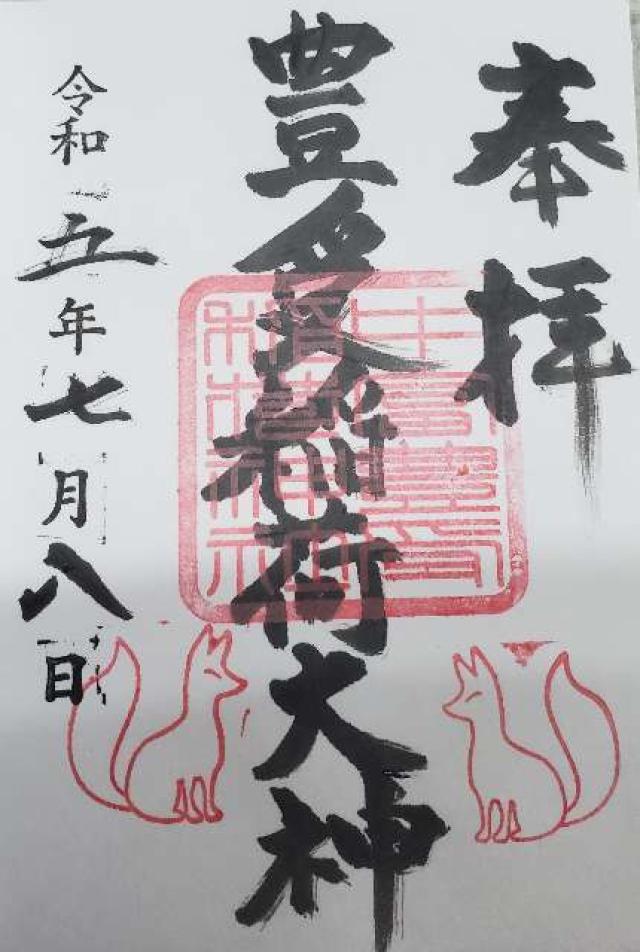 奉拝
豊受稲荷大神
令和五年七月八日